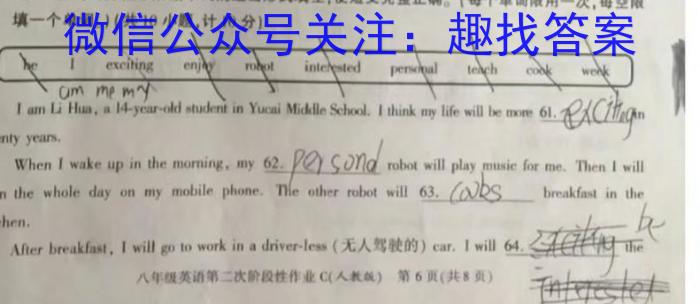 填一个
微信公众号关注：趣找答案
he I exciting enjoy robot interested personal teach cook week
am me my
I am Li Hua, a 14-year-old student in Yucai Middle School. I think my life will be more 61. exciting in
nty years.
When I wake up in the morning, my 62. personal robot will play music for me. Then I will
n the whole day on my mobile phone. The other robot will 63. coobs breakfast in the
hen.
After breakfast, I will go to work in a driver-less (无人驾驶的) car. I will 64. be the
interested
八年级英语第二次阶段性作业 C(人教版) 第 6 页(共 8 页)